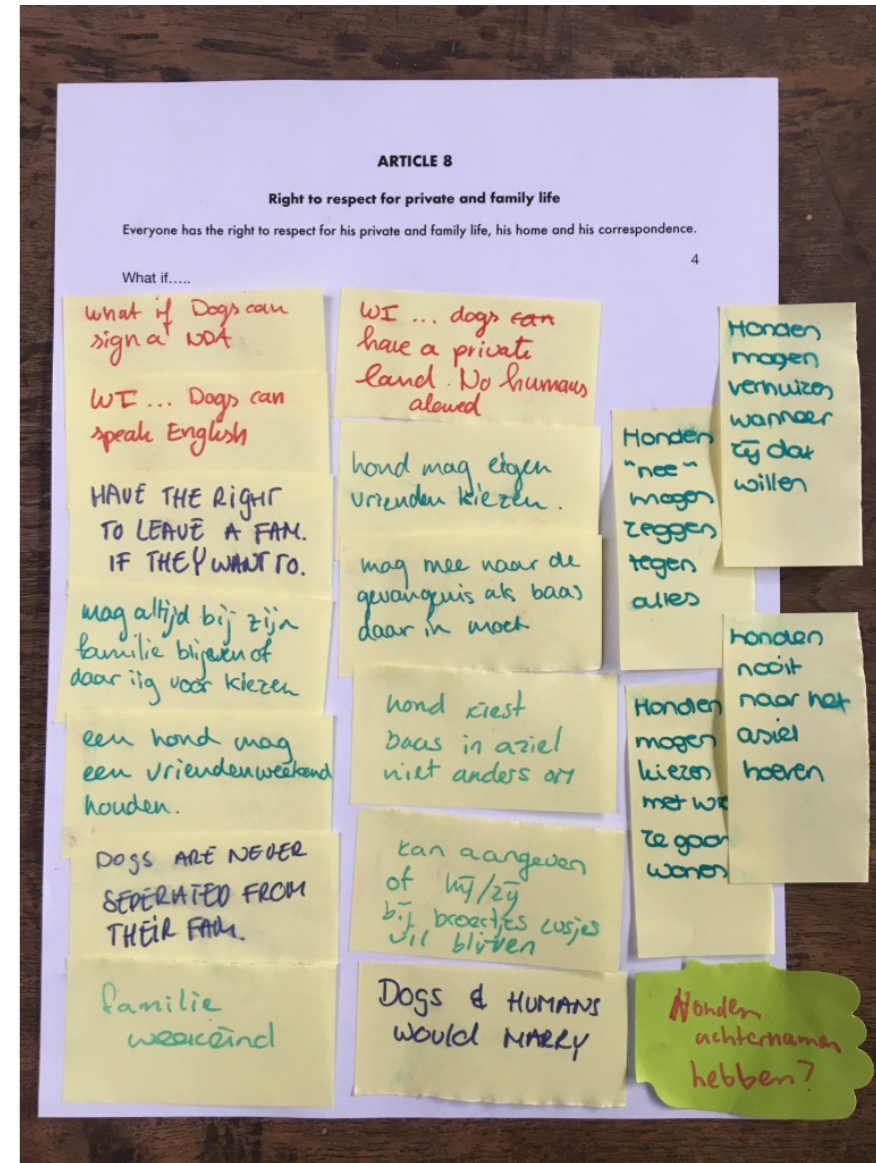 ARTICLE 8
Right to respect for private and family life
Everyone has the right to respect for his private and family life, his home and his correspondence.
4
What if.....
what if Dogs can
sign a NDA
WI ... Dogs can
speak English
HAVE THE RIGHT
TO LEAVE A FAM.
IF THEY WANT TO.
mag altijd bij zijn
familie blijven of
daar iig voor kiezen
een hond mag
een vriendenweekend
houden.
DOGS ARE NEVER
SEPERATED FROM
THEIR FAM.
familie
weekeind
WI ... dogs can
have a private
land. No humans
alowed
hond mag eigen
vrienden kiezen.
mag mee naar de
gevangenis als baas
daar in moet
hond kiest
baas in aziel
niet anders om
kan aangeven
of hij/zij
bij broertjes zusjes
wil blijven
DOGS & HUMANS
WOULD MARRY
Honden
"nee"
mogen
zeggen
tegen
alles
Honden
mogen
kiezen
met wie
ze gaan
wonen
Honden
mogen
verhuizen
wanneer
zij dat
willen
honden
nooit
naar het
asiel
hoeven
Honden
achternamen
hebben?